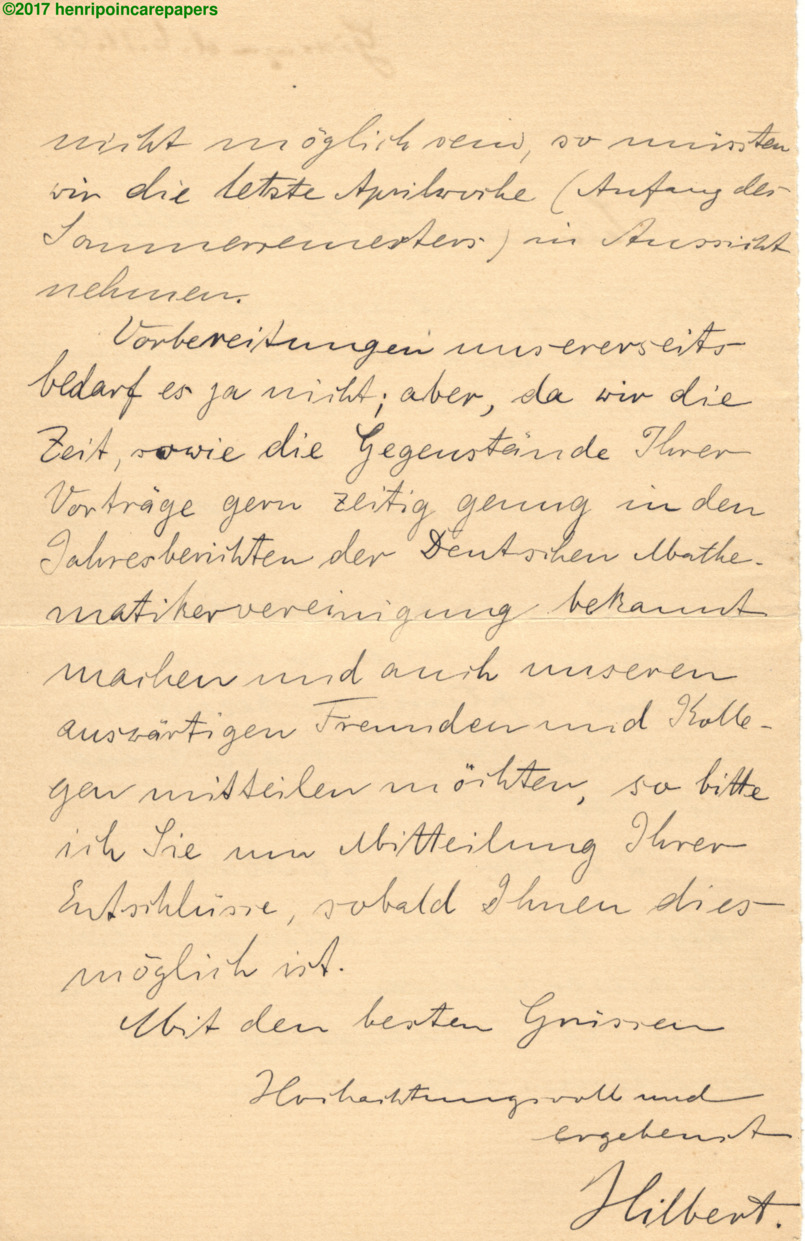 ©2017 henripoincarepapers
nicht möglich sein, so müssten
wir die letzte Aprilwoche (Anfang des
Sommersemesters) in Aussicht
nehmen.
Vorbereitungen unsererseits
bedarf es ja nicht; aber, da wir die
Zeit, sowie die Gegenstände Ihrer
Vorträge gern zeitig genug in den
Jahresberichten der Deutschen Mathe-
matikervereinigung bekannt
machen und auch unseren
auswärtigen Freunden und Kolle-
gen mitteilen möchten, so bitte
ich Sie um Mitteilung Ihrer
Entschlüsse, sobald Ihnen dies
möglich ist.
Mit den besten Grüssen
Hochachtungsvoll und
ergebenst
Hilbert.